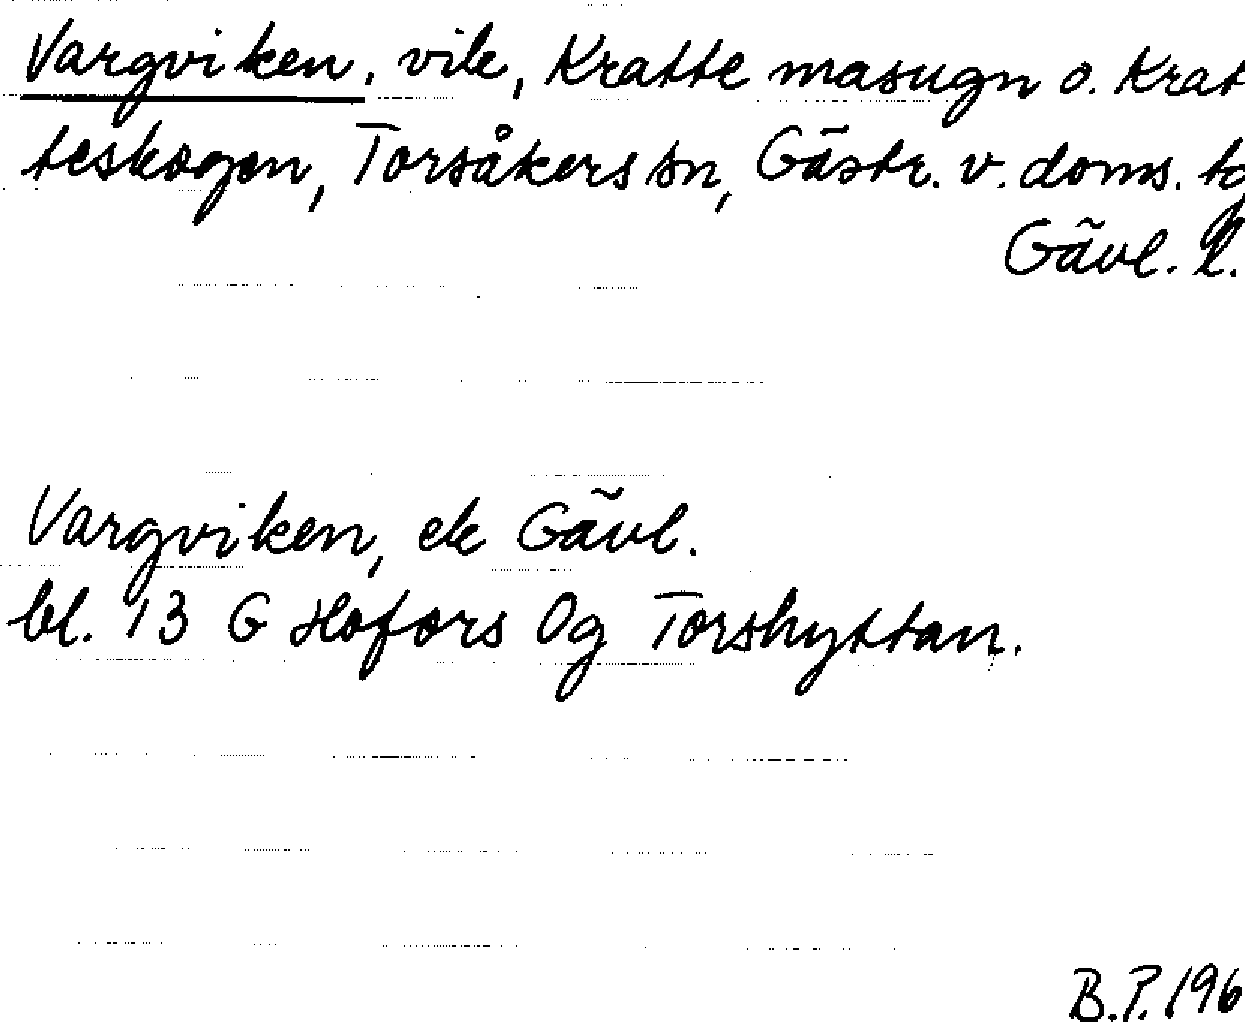 Vargviken, vik, Kratte masugn o. Krat
teskogen, Torsåkers sn, Gästr. v. doms. tg
Gävl. l.
Vargviken, ek Gävl.
bl. 13 G Hofors Og Torshyttan.
B.P. 196